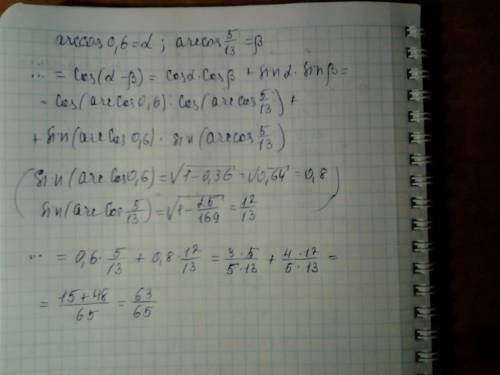 arccos 0,6 = α ; arccos 5/13 = β
... = cos(α-β) = cosα·cosβ + sinα·sinβ =
= cos(arccos 0,6)·cos(arccos 5/13) +
+ sin(arccos 0,6)·sin(arccos 5/13)
(sin(arccos 0,6) = √(1-0,36) = √0,64 = 0,8
sin(arccos 5/13) = √(1 - 25/169) = 12/13)
... = 0,6·5/13 + 0,8·12/13 = 3·5/5·13 + 4·12/5·13 =
= 15+48/65 = 63/65